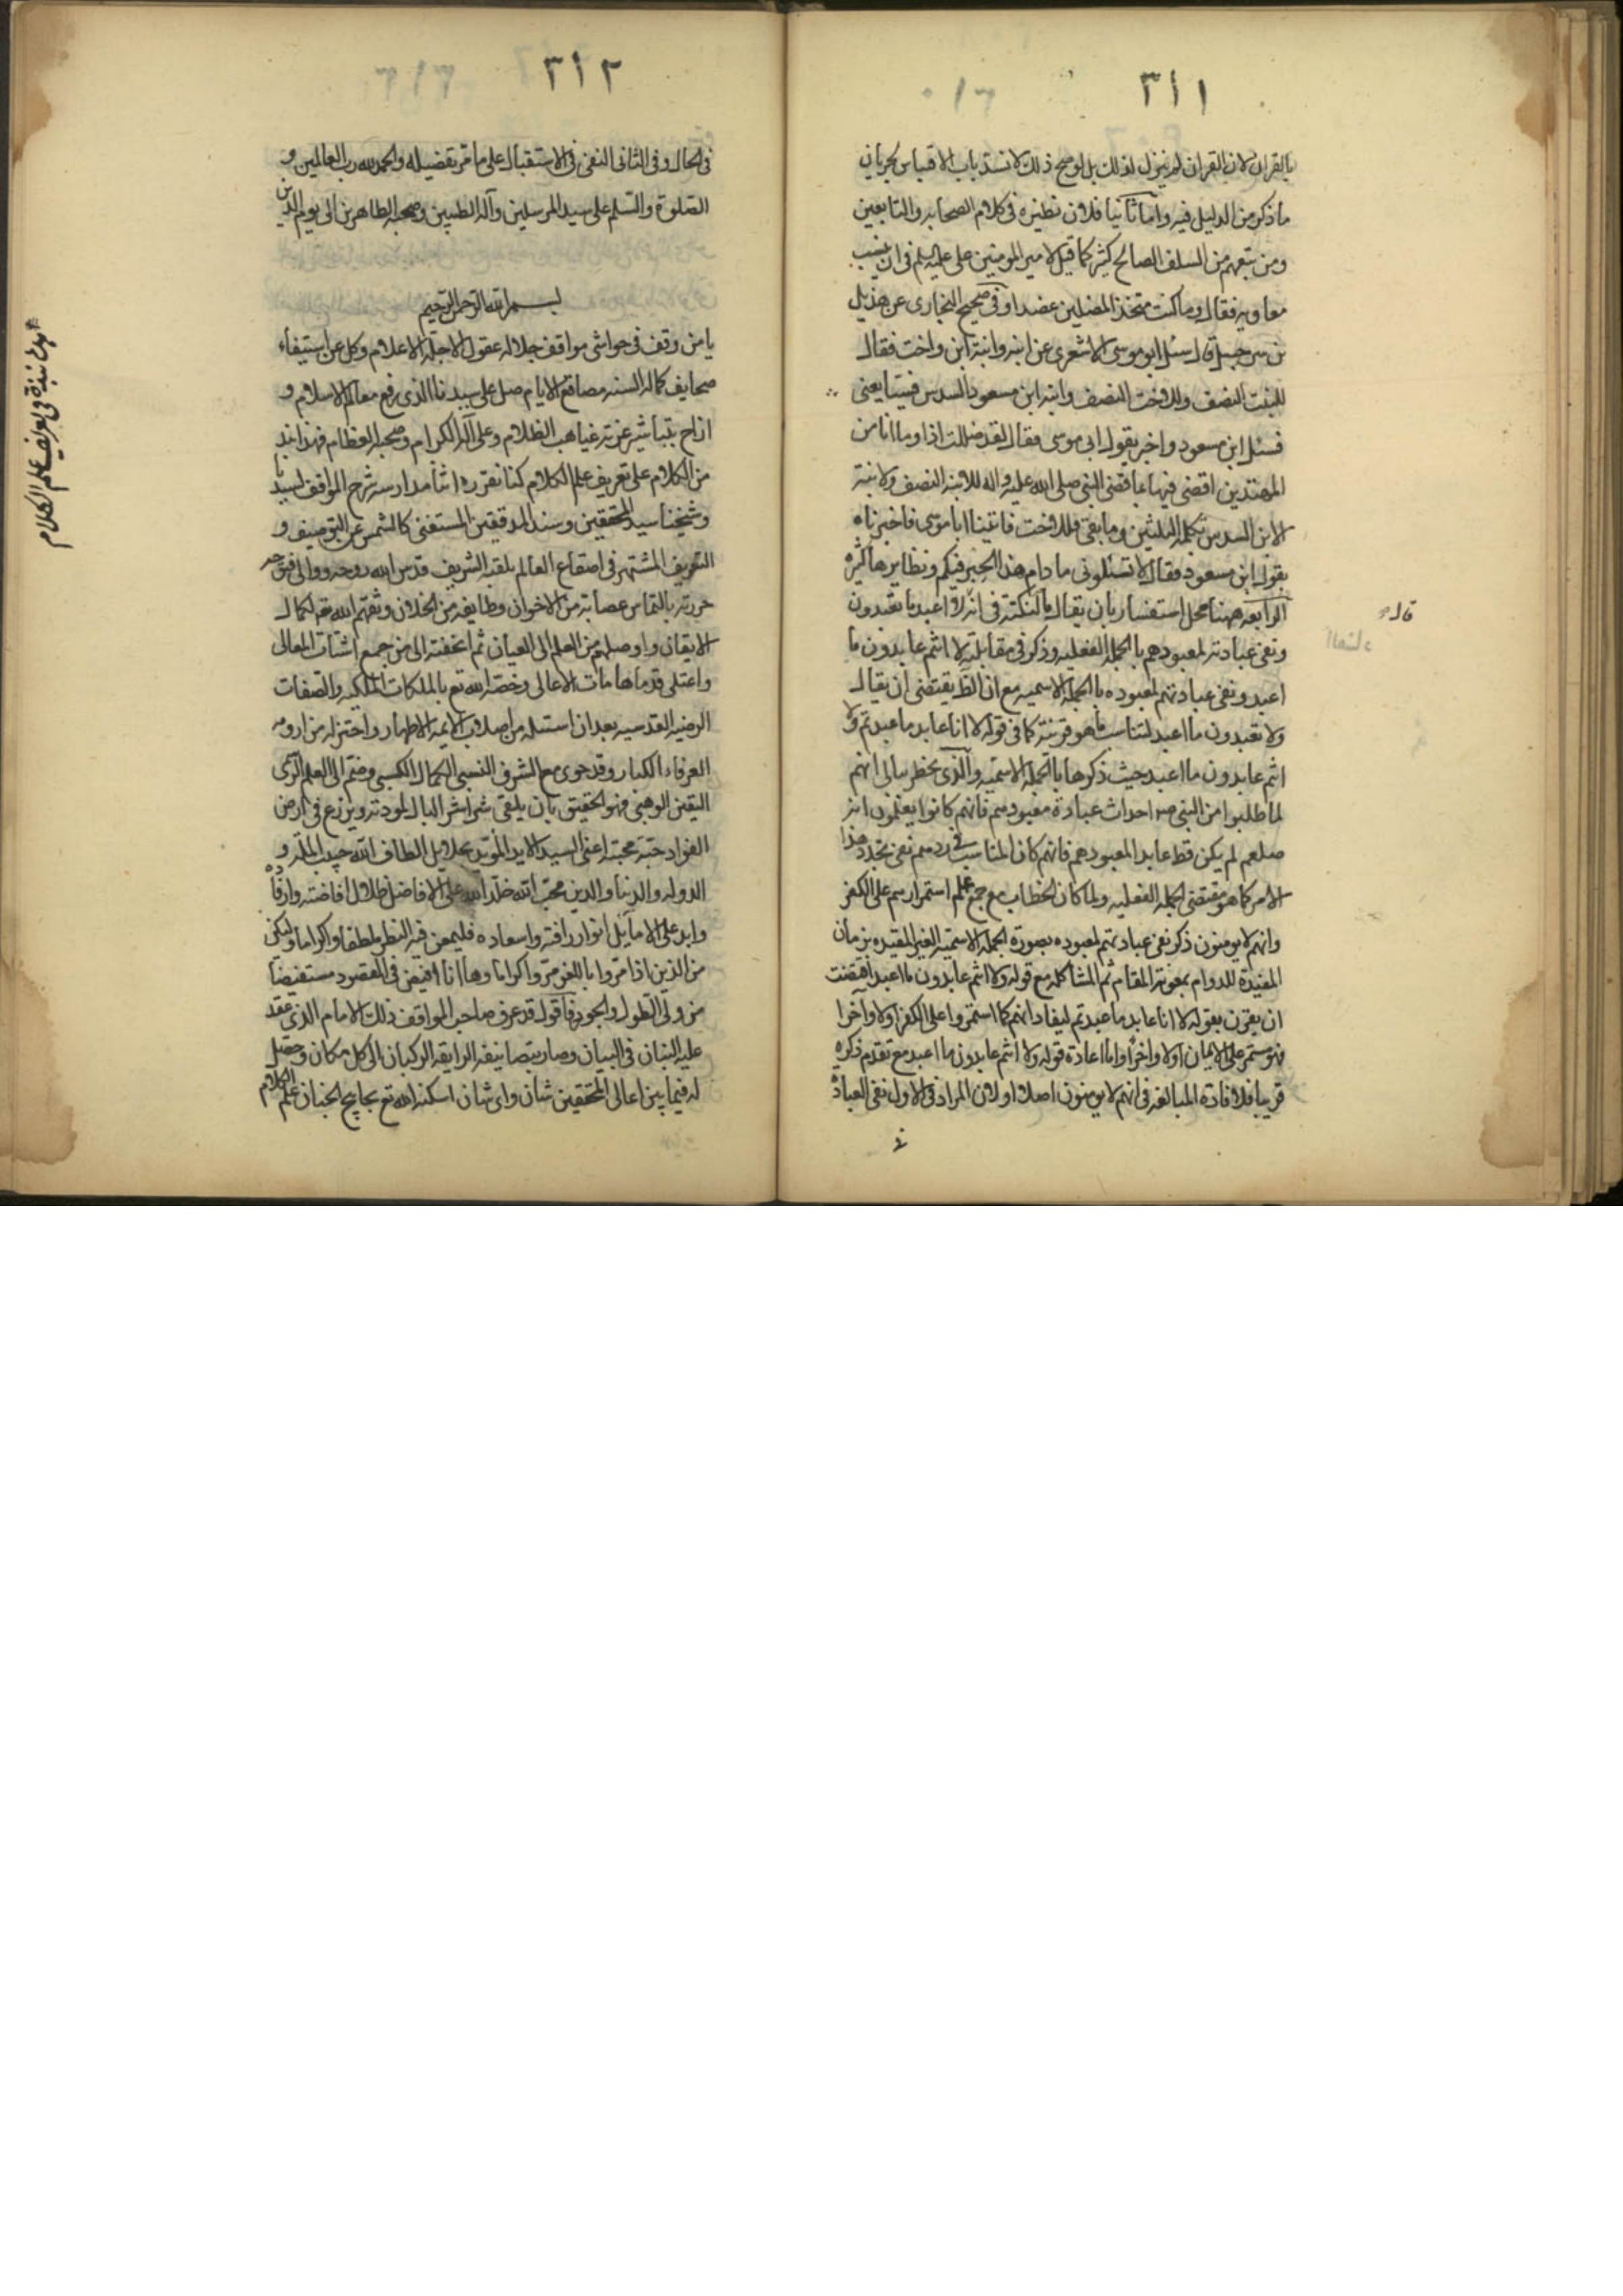 ٣١١
بالقران لان القران لم ينزل لذلك بل لوضح ذلك لانسد باب الاقتباس لجريان
ما ذكر من الدليل فيه واما ثانيا فلان نظيره في كلام الصحابه والتابعين
ومن تبعهم من السلف الصالح كثير كما قيل لامير المومنين علي عليه السلم في ان ينصب
معاويه فقال وما كنت متخذ المضلين عضدا وفي صحيح البخاري عن هذيل
بن شرحبيل قال سئل ابو موسى الاشعري عن ابنه وابنة ابن واخت فقال
للبنت النصف وللاخت النصف وايت ابن مسعود السدس فيتابعني
فسئل ابن مسعود واخبر بقول ابي موسى فقال لقد ضللت اذا وما انا من
المهتدين اقضي فيها بما قضى النبي صلى الله عليه واله للابنه النصف ولابنة
الابن السدس تكمله الثلثين وما بقي فللاخت فاتينا ابا موسى فاخبرناه
بقول ابن مسعود فقال لا تسئلوني ما دام هذا الحبر فيكم ونظايرها كثيره
الرابعه ههنا محل استفسار بان يقال ما النكتة في انه قال لا اعبد ما تعبدون
قال
ونفى عبادته لمعبودهم بالجمله الفعليه وذكر في مقابلته لا انتم عابدون ما
اعبد ونفى عبادتهم لمعبوده بالجملة الاسميه مع ان الظ يقتضي ان يقال
ولا تعبدون ما اعبد لتناسب ما هو قرينته كما في قوله لا انا عابد ما عبدتم ولا
انتم عابدون ما اعبد حيث ذكرها بالجملة الاسميه والذي يخطر ببالي انهم
لما طلبوا من النبي ص احداث عبادة معبودهم فانهم كانوا يعلمون انه
صلعم لم يكن قط عابدا لمعبودهم فانهم كان المناسب في ردهم نفى تجدد هذا
الامر كما هو مقتضى الجمله الفعليه ولما كان الخطاب مع جمع علم استمرارهم على الكفر
وانهم لا يومنون ذكر نفى عبادتهم لمعبوده بصورة الجملة الاسميه الغير المقيده بزمان
المفيدة للدوام بمعونة المقام ثم المشاكله مع قوله ولا انتم عابدون ما اعبد اقتضت
ان يقرن بقوله لا انا عابد ما عبدتم ليفاد انهم كما استمروا على الكفر اولا وآخرا
فهو مستمر على الايمان اولا واخرا واما اعادة قوله ولا انتم عابدون ما اعبد مع تقدم ذكره
قريبا فلافادة المبالغه في انهم لا يومنون اصلا او لان المراد في الاول نفى العبادة
في
٣١٢
في الحال وفي الثاني النفي في الاستقبال على ما مر تفصيله والحمد لله رب العالمين و
الصلوة والسلم على سيد المرسلين وآله الطيبين وصحبه الطاهرين الى يوم الدين
بسم الله الرحمن الرحيم
يا من وقف في حواشي مواقف جلاله عقول الاجلة الاعلام وكل عن استيفاء
صحايف كماله السنه مصاقع الايام صل على سيدنا الذي رفع معالم الاسلام و
ازاح بتباشير عزته غياهب الظلام وعلى آله الكرام وصحبه العظام فهذا نبذ
من الكلام على تعريف علم الكلام كنا نقرره اثنا مدارسة شرح المواقف لسيدنا
وشيخنا سيد المحققين وسند المدققين المستغني كالشمس عن التوصيف و
التعريف المشتهر في اصقاع العالم بلقبه الشريف قدس الله روحه ووالى فتوحه
حررته بالتماس عصابة من الاخوان وطايفه من الخلان وفقهم الله تع لكمال
الايقان واوصلهم من العلم الى العيان ثم اتحفته الى من جمع اشتات المعالي
واعتلى قدما هامات الاعالي وخصه الله تع بالملكات الملكيه والصفات
الرضيه القدسيه بعد ان استسله من اصلاب الايمه الاطهار واختزله من ارومه
العرفاء الكبار وقد حوى مع الشرف النسبي الكمال الكسبي وضم الى العلم الرى
اليقين الوهبي فهو الحقيق بان يلقى شراشر البال لمودته ويزرع في ارض
الفواد حبة محبته اعني السيد الايد المويد بجلايل الطاف الله حبيب الملة و
الدوله والدنيا والدين محب الله خلد الله على الافاضل ظلال افاضته وارفاده
وابد على الاماثل انوار رافته واسعاده فليمعن فيه النظر لطفا واكراما وليكن
من الذين اذا مروا باللغو مروا كراما وها انا افيض في المقصود مستفيضا
من ولي الطول والجود فاقول قد عرف صاحب المواقف ذلك الامام الذي عقد
عليه البنان في البيان وصار بتصانيفه الرايقه الركبان الى كل مكان وحصل
له فيما بين اعالي المحققين شان واي شان اسكنه الله تع بحابح الجنان علم الكلام
هذه نبذة في تعريف علم الكلام